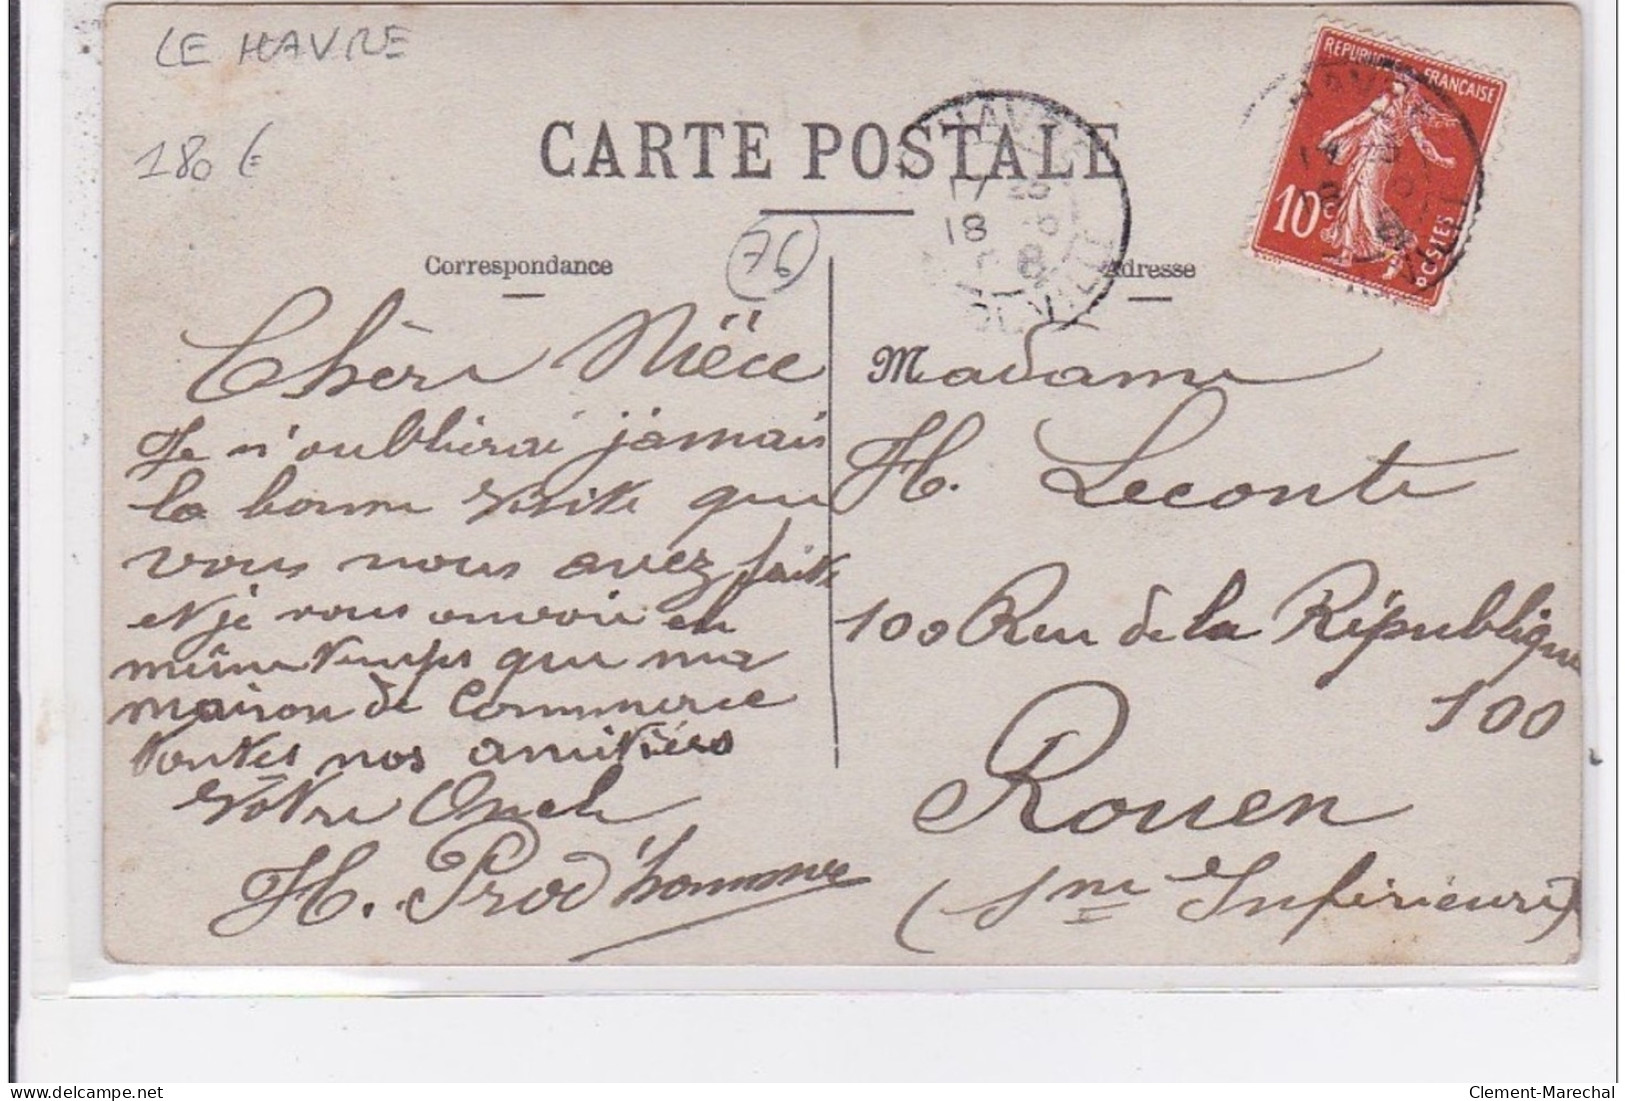 LE HAVRE
180 €
CARTE POSTALE
REPUBLIQUE FRANÇAISE
10c
POSTES
HAVRE
18
8
76
Correspondance
Adresse
Chère Nièce
Je n'oublierai jamais
la bonne visite que
vous nous avez faite
et je vous envoie en
même temps que ma
maison de Commerce
toutes nos amitiés
Vôtre Oncle
H. Prod'homme
Madame
H. Leconte
100 Rue de la République
100
Rouen
(Sne Inférieure)
Clement-Marechal